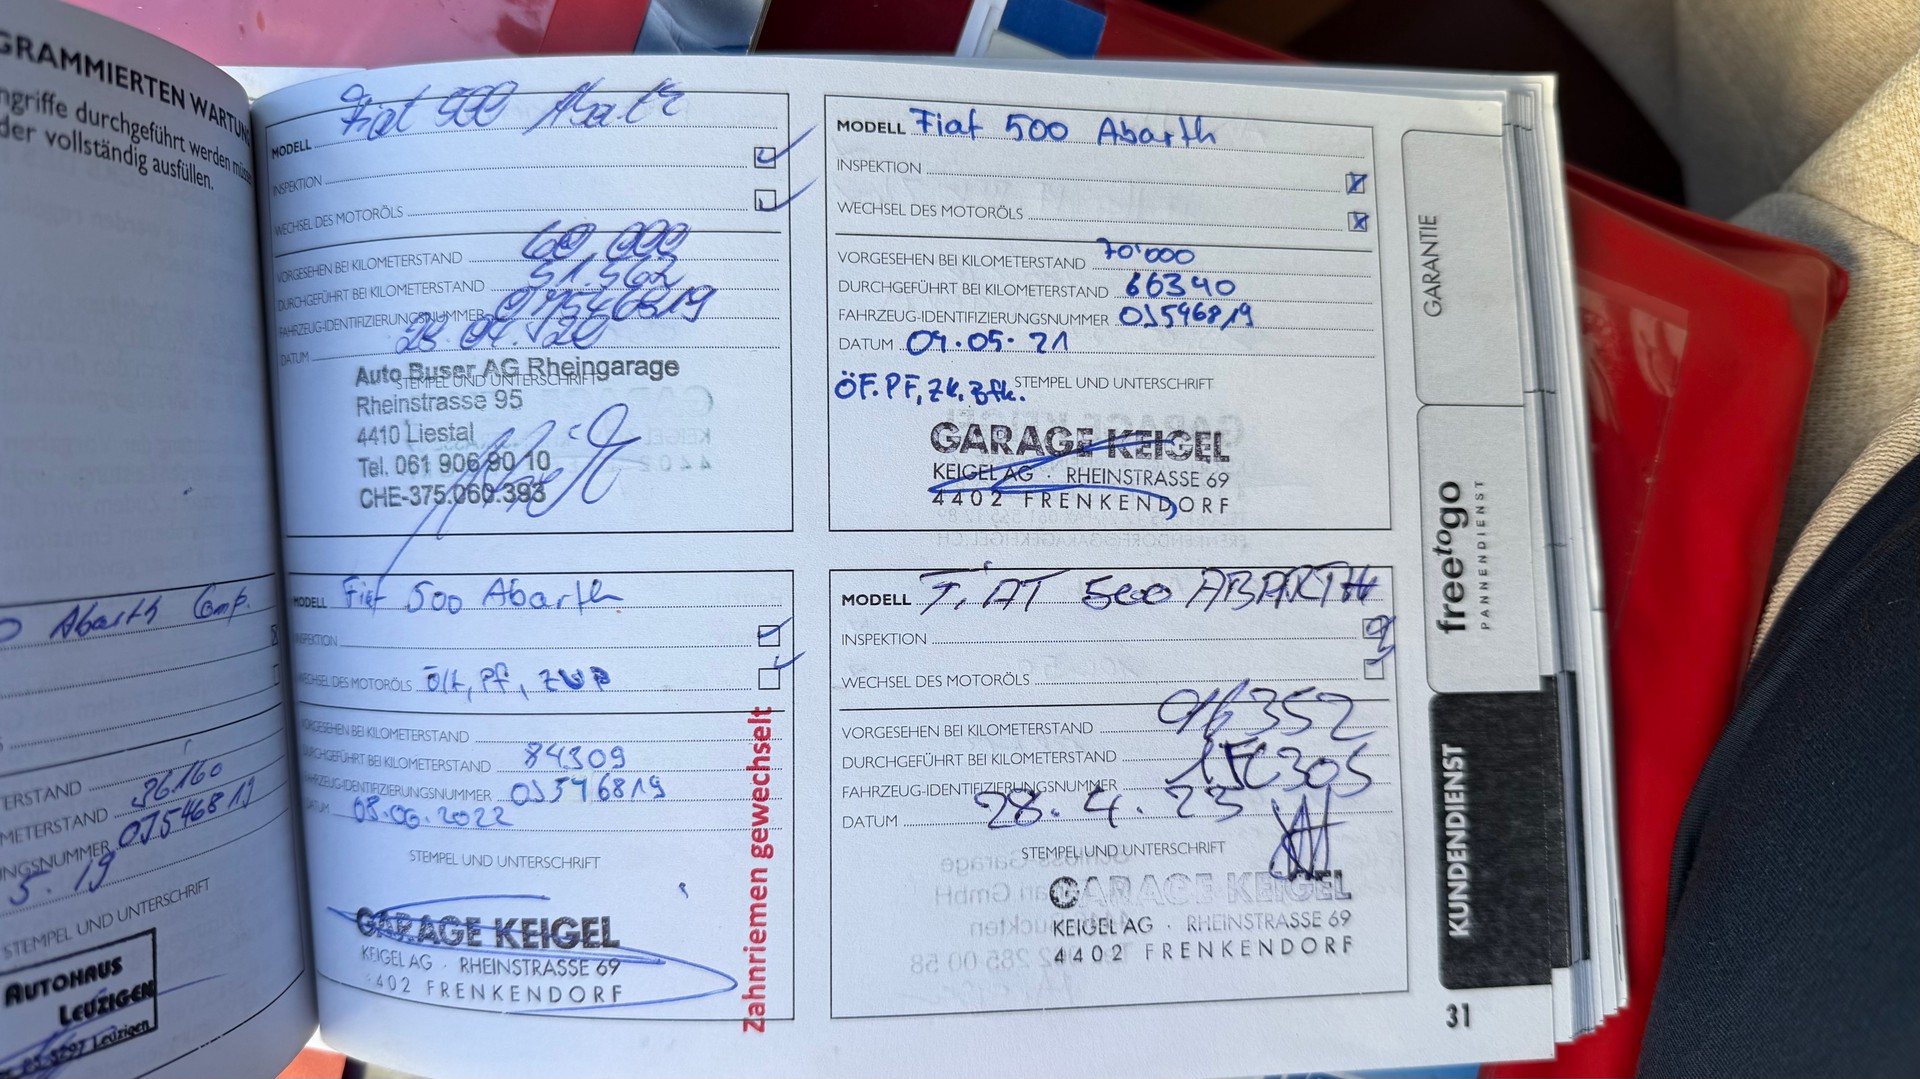 GRAMMIERTEN WARTUN
ngriffe durchgeführt werden müsse
der vollständig ausfüllen.
Abarth Comp.
ERSTAND 36.160
METERSTAND
NGSNUMMER 0J546819
5.19
STEMPEL UND UNTERSCHRIFT
AUTOHAUS
LEUZIGEN
3297 Leuzigen
MODELL Fiat 500 Abarth
INSPEKTION
WECHSEL DES MOTORÖLS
VORGESEHEN BEI KILOMETERSTAND 60,000
DURCHGEFÜHRT BEI KILOMETERSTAND 51.562
FAHRZEUG-IDENTIFIZIERUNGSNUMMER 0J546819
DATUM
STEMPEL UND UNTERSCHRIFT
Auto Buser AG Rheingarage
Rheinstrasse 95
4410 Liestal
Tel. 061 906 90 10
CHE-375.060.393
MODELL Fiat 500 Abarth
INSPEKTION
WECHSEL DES MOTORÖLS
VORGESEHEN BEI KILOMETERSTAND 70'000
DURCHGEFÜHRT BEI KILOMETERSTAND 66340
FAHRZEUG-IDENTIFIZIERUNGSNUMMER 0J546819
DATUM 04.05.21
ÖF. PF, ZK. Bfk. STEMPEL UND UNTERSCHRIFT
GARAGE KEIGEL
KEIGEL AG · RHEINSTRASSE 69
4402 FRENKENDORF
MODELL Fiat 500 Abarth
INSPEKTION
WECHSEL DES MOTORÖLS
VORGESEHEN BEI KILOMETERSTAND
DURCHGEFÜHRT BEI KILOMETERSTAND 84309
FAHRZEUG-IDENTIFIZIERUNGSNUMMER 0J546819
DATUM 08.06.2022
STEMPEL UND UNTERSCHRIFT
GARAGE KEIGEL
KEIGEL AG · RHEINSTRASSE 69
4402 FRENKENDORF
Zahnriemen gewechselt
MODELL FiAT 500 ABARTH
INSPEKTION
WECHSEL DES MOTORÖLS
VORGESEHEN BEI KILOMETERSTAND
DURCHGEFÜHRT BEI KILOMETERSTAND
FAHRZEUG-IDENTIFIZIERUNGSNUMMER
DATUM 28.4.23
STEMPEL UND UNTERSCHRIFT
GARAGE KEIGEL
KEIGEL AG · RHEINSTRASSE 69
4402 FRENKENDORF
GARANTIE
freetogo
PANNENDIENST
KUNDENDIENST
31